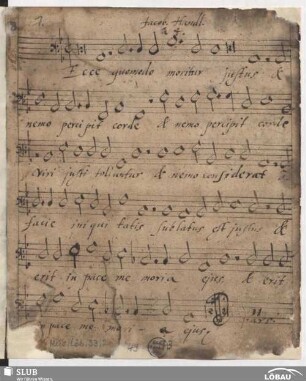 7.
Jacob. Handl:
Ecce quomodo moritur justus &
nemo percipit corde & nemo percipit corde
& viri justi tolluntur & nemo considerat
facie iniqui tatis sublatus est justus &
erit in pace me moria ejus & erit
pace me mori - a ejus.
SLUB
Wir führen Wissen.
LÖBAU